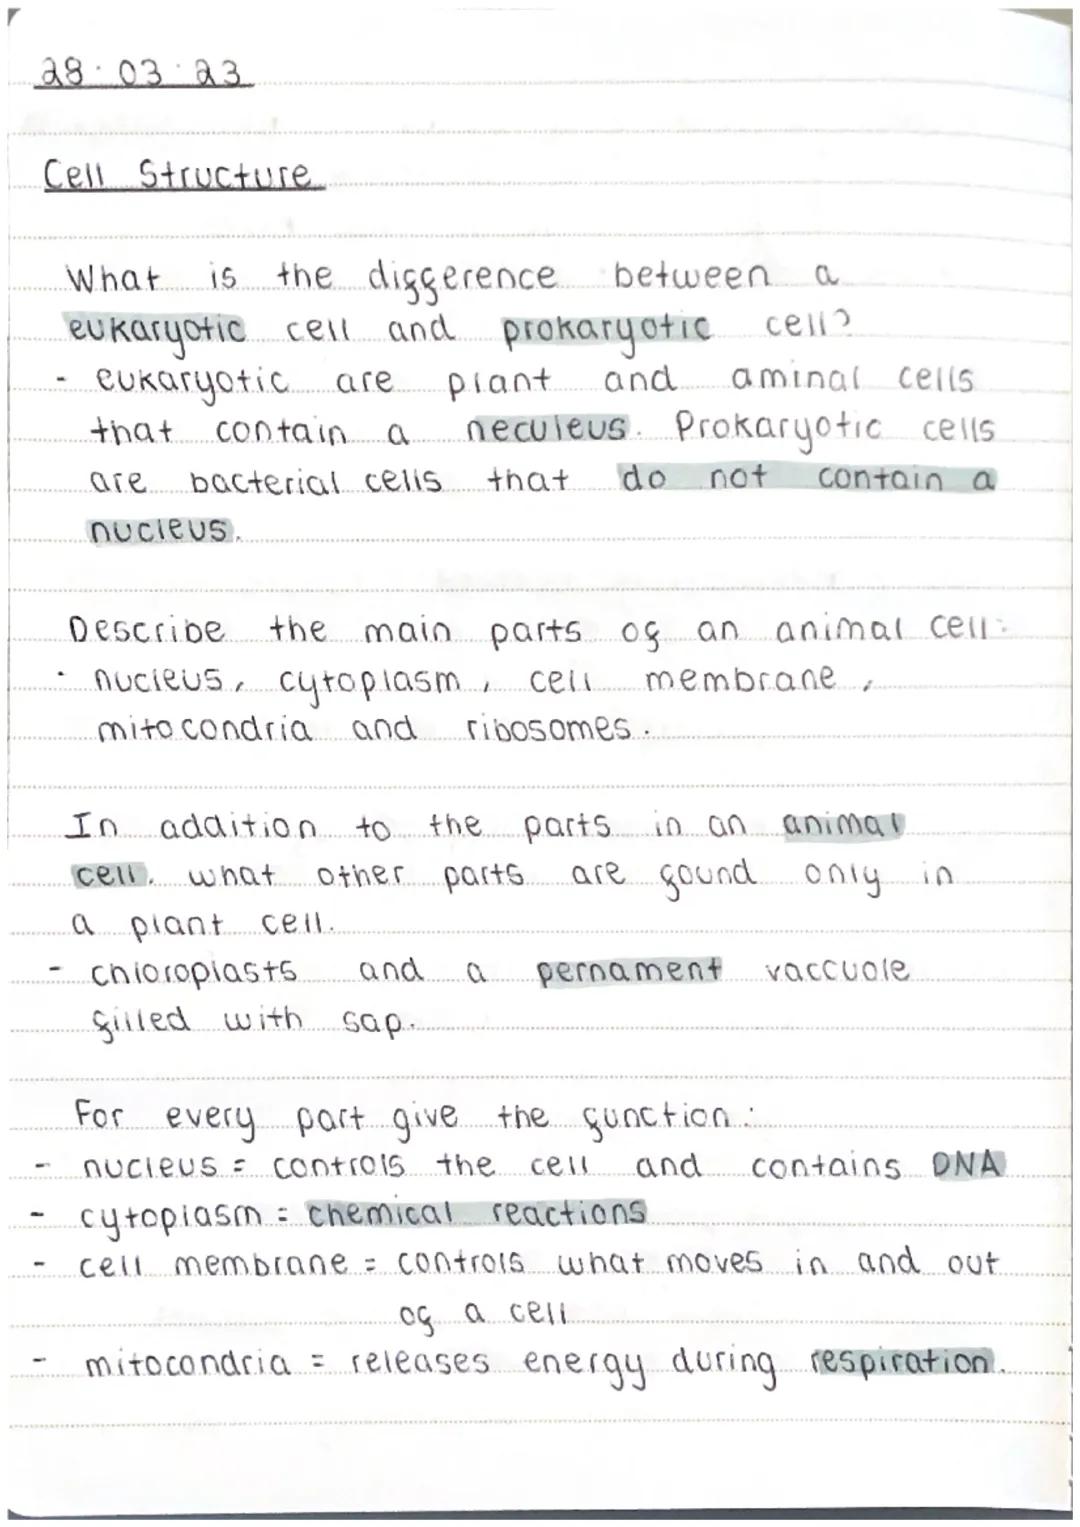 28.03.23
Cell Structure
What is the difference between a
eukaryotic cell and prokaryotic cell?
- eukaryotic are plant and aminal cells
that contain a neculeus. Prokaryotic cells
are bacterial cells that do not contain a
nucleus.
Describe the main parts of an animal cell:
· nucleus, cytoplasm, cell membrane,
mitocondria and ribosomes.
In addition to the parts in an animal
cell, what other parts are found only in
a plant cell.
- chloroplasts and a pernament vaccuole
filled with sap.
For every part give the function:
- nucleus = controls the cell and contains DNA
- cytoplasm = chemical reactions
- cell membrane = controls what moves in and out
of a cell
- mitocondria = releases energy during respiration.